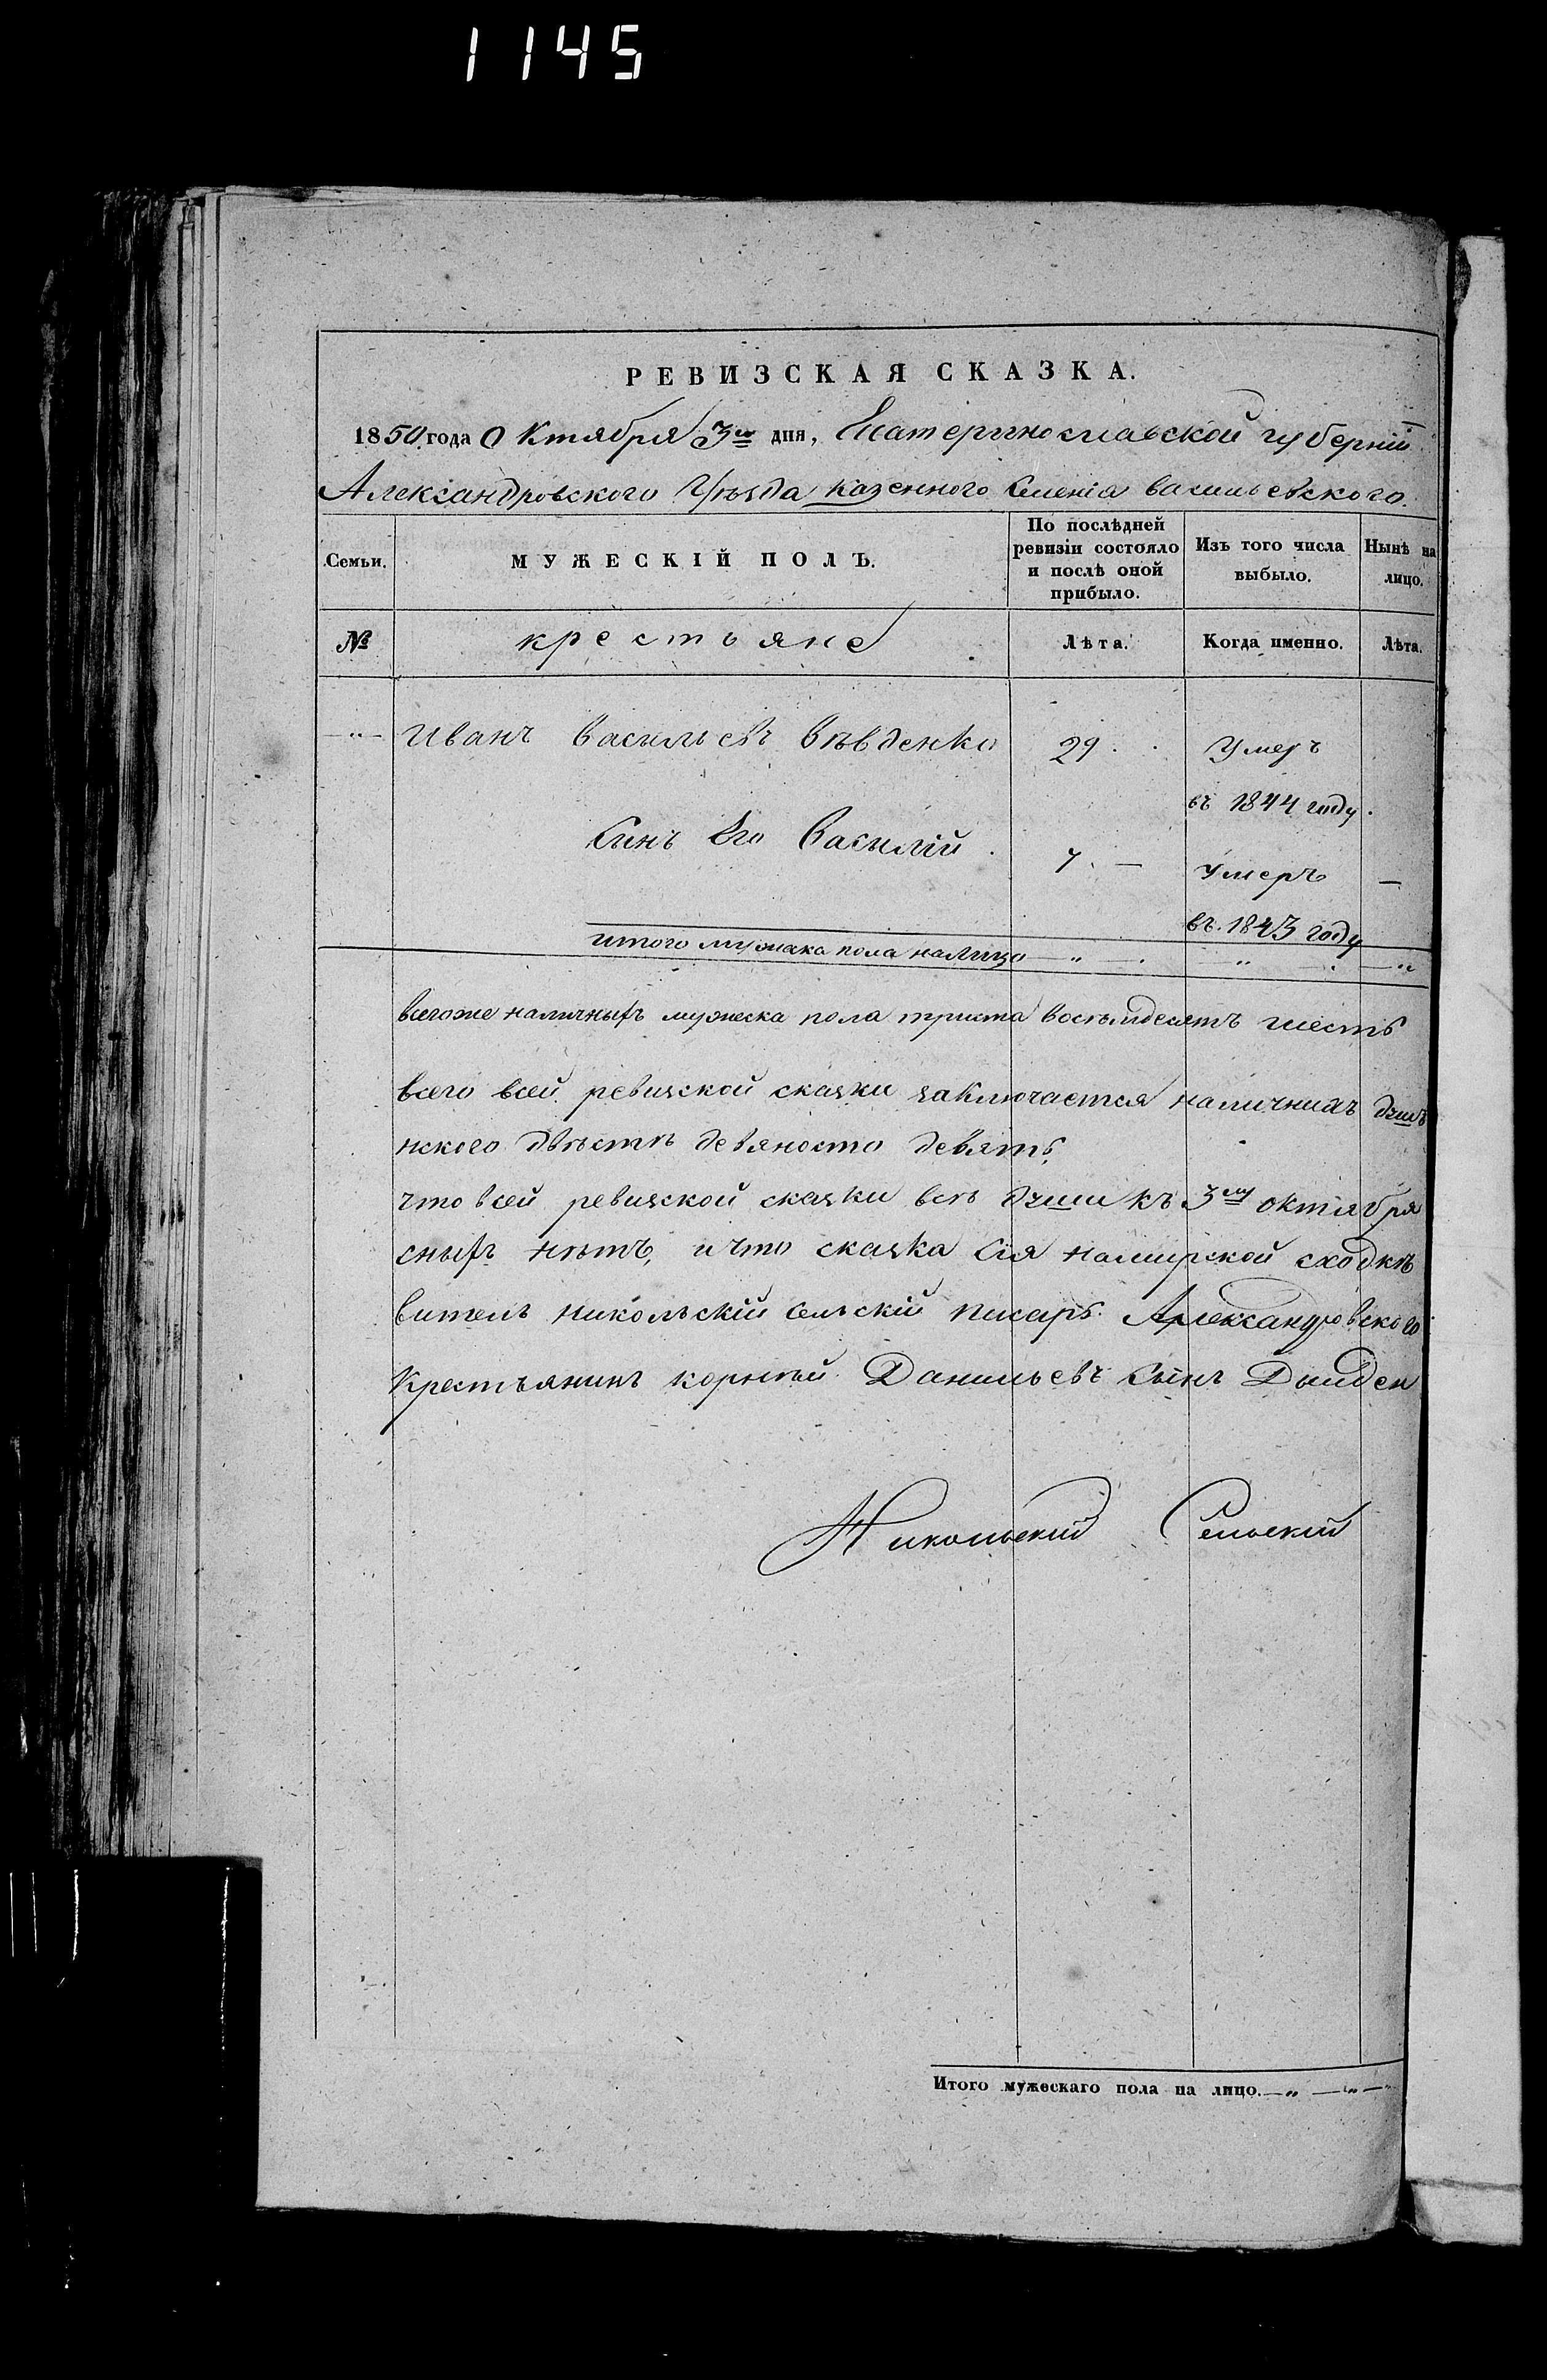 1145
РЕВИЗСКАЯ СКАЗКА.
1850 года Октября 3го дня, Екатеринославской губерніи
Александровского Уѣзда казенного Селенія васильевского.
Семьи.
МУЖЕСКІЙ ПОЛЪ.
По послѣдней ревизіи состояло и послѣ оной прибыло.
Изъ того числа выбыло.
Нынѣ на лицо.
№
крестьяне
Лѣта.
Когда именно.
Лѣта.
Иванъ васильевъ вѣвденко 29. Умеръ
въ 1844 году.
Сынъ Его Василій. 7. — Умеръ —
въ 1843 году
итого мужеска пола налицо — „ — „ — „
всегоже наличныхъ мужеска пола триста восемдесятъ шесть
всего всей ревизской сказки заключается наличнихъ душъ
нского двѣстѣ девяносто девять,
что всей ревизской сказки всѣ души къ 3му октября
сныхъ нѣтъ, и что сказка Сія намирской сходкѣ
витель никольскій сельскій писарь Александровского
крестьянинъ корнѣй Данильевъ Сынъ
Никольский Сельский
Итого мужескаго пола на лицо. — „ — „ —